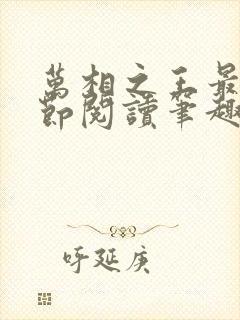 萬相之王最
節閱讀筆趣
呼延庚